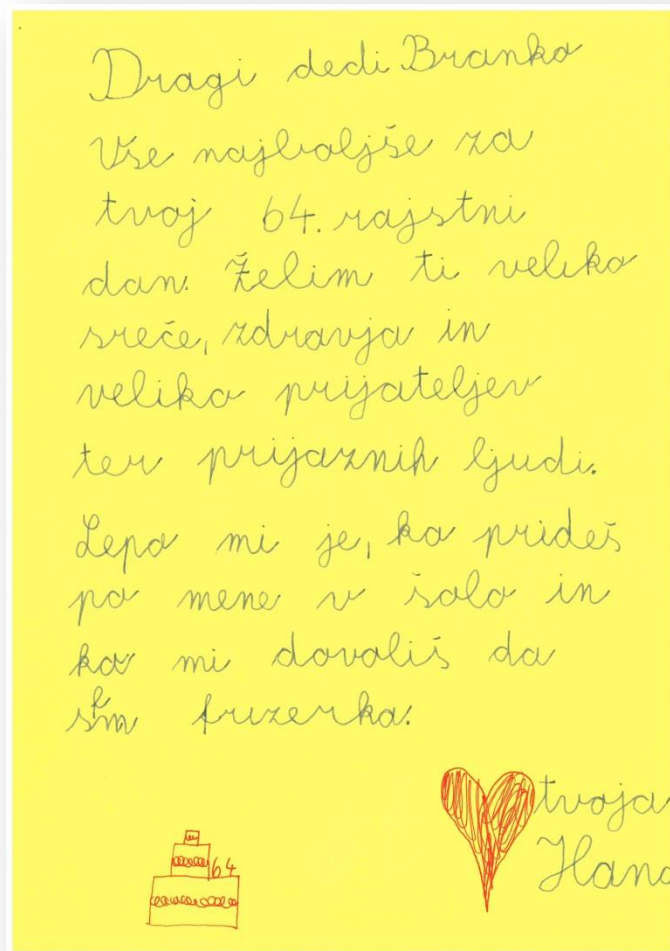 Dragi dedi Branko
Vse najboljše za
tvoj 64. rajstni
dan. Želim ti veliko
sreče, zdravja in
veliko prijateljev
ter prijaznih ljudi.
Lepo mi je, ko prideš
po mene v šolo in
ko mi dovoliš da
sem frizerka.
tvoja
Hana
64